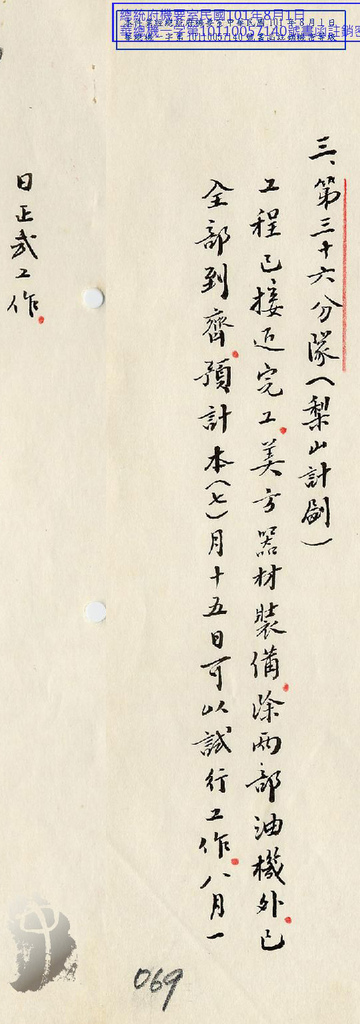 總統府機要室民國101年8月1日
華總機一字第10110057140號書函註銷密
三、第三十六分隊（梨山計劃）
工程已接近完工。美方器材裝備。除兩部油機外。已
全部到齊。預計本（七）月十五日可以試行工作。八月一
日正式工作。
069